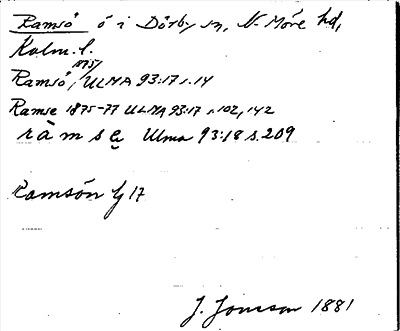 Ramsö ö i Dörby sn, N. Möre hd,
Kalm. l.
1875/
Ramsö, ULMA 93:17 s. 14
Ramse 1875-77 ULMA 93:17 s. 102, 142
ràmsę Ulma 93:18 s. 209
Ramsön G 17
J. Jonsson 1881